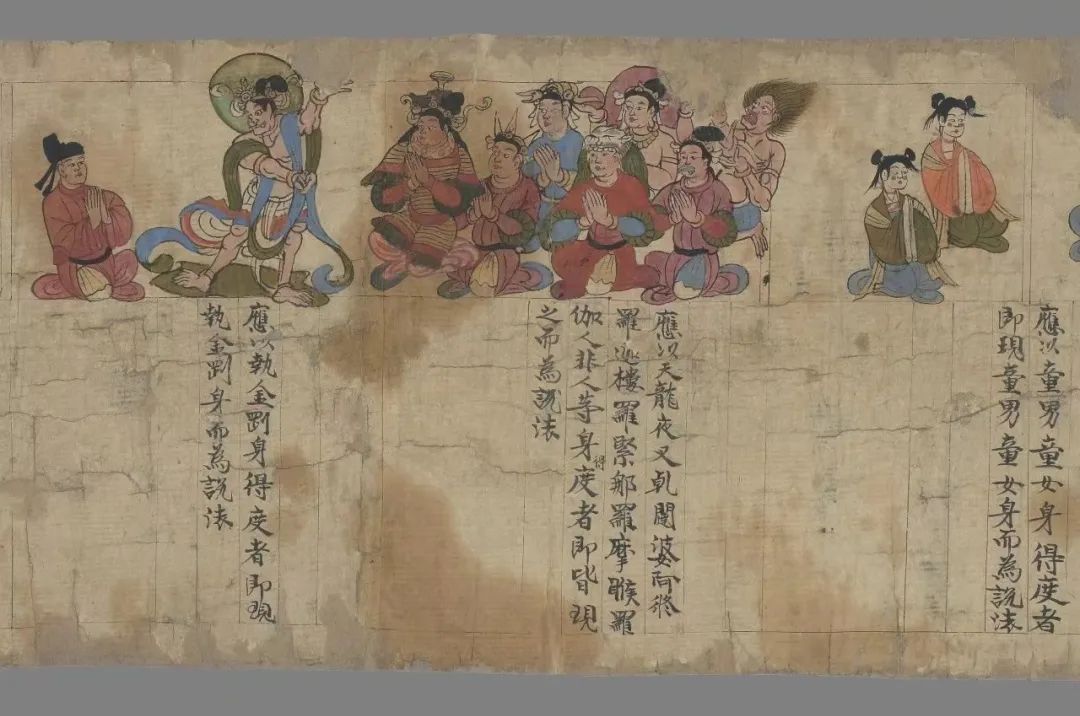 應以童男童女身得度者
即現童男童女身而為說法
應以天龍夜叉乹闥婆阿修
羅迦樓羅緊那羅摩睺羅
伽人非人等身得度者即皆現
之而為說法
應以執金剛身得度者即現
執金剛身而為說法